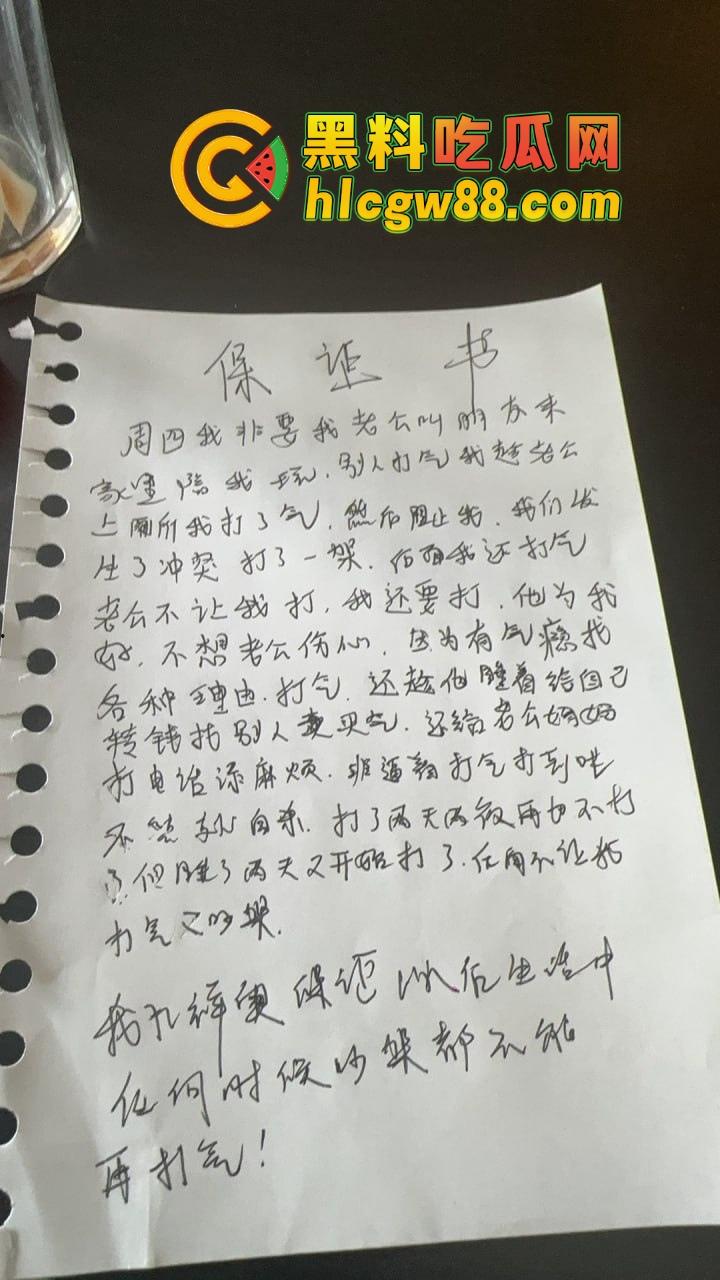 黑料吃瓜网
hlcgw88.com
保证书
周四我非要我老公叫朋友来
家里陪我玩，别人打气我趁老公
上厕所我打了气，然后阻止我，我们发
生了冲突 打了一架，后面我还打气
老公不让我打，我还要打，他为我
好，不想老公伤心，因为有气瘾找
各种理由，打气，还趁他睡着给自己
转钱找别人 买气，还给老公妈妈
打电话添麻烦，非逼着打气打到
自杀，打了两天两夜再也不打
了但睡了两天又开始打了，不让我
打气又吵架，
我 保证以后生活中
任何时候吵架都不能
再打气！